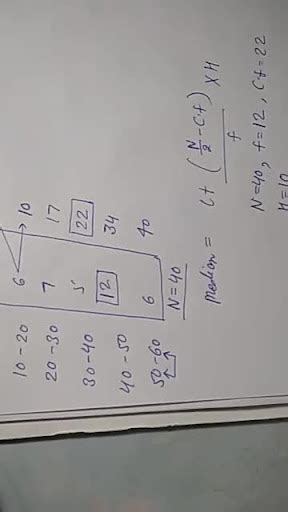 10-20 6 10
20-30 7 17
30-40 5 22
40-50 12 34
50-60 6 40
N=40
median = l+ (N/2 - c.f) x H
f
N=40, f=12, Cf=22
H=10